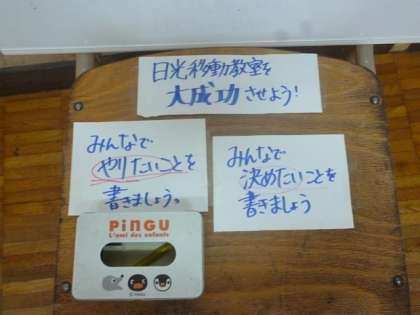 日光移動教室を
大成功させよう!
みんなで
やりたいことを
書きましょう。
みんなで
決めたいことを
書きましょう
PiNGU
L'ami des enfants